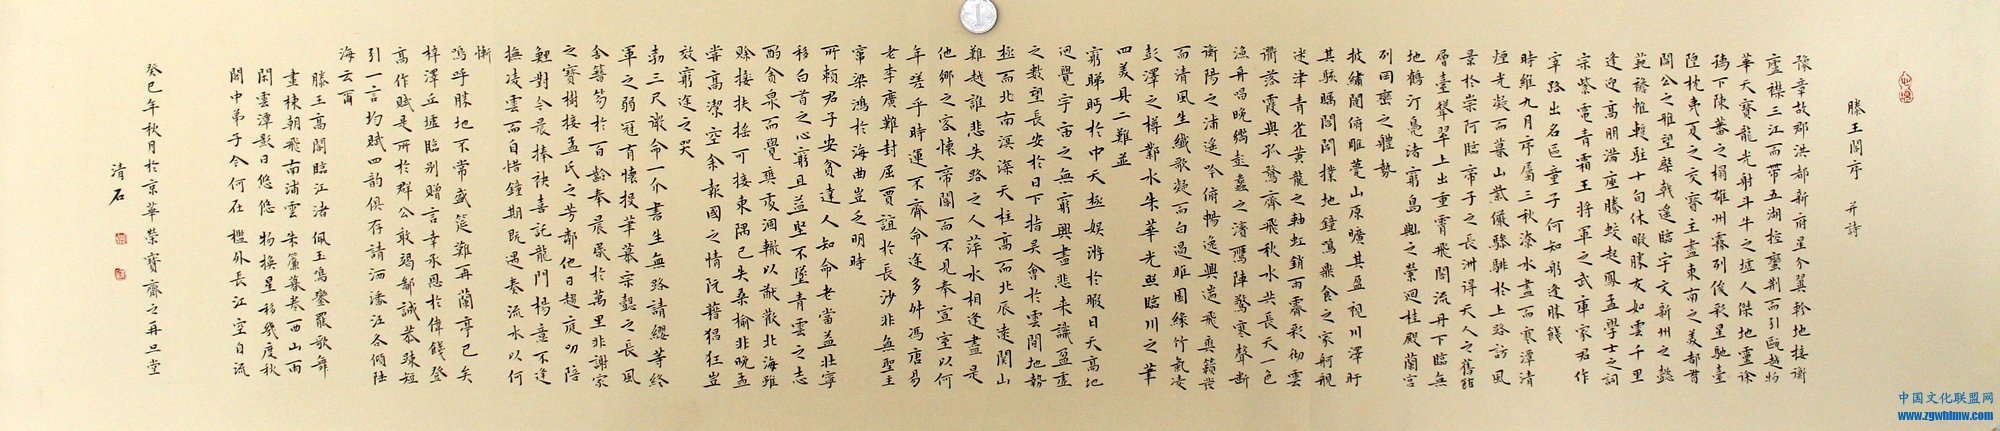 滕王閣序 并詩
豫章故郡洪都新府星分翼軫地接衡
廬襟三江而帶五湖控蠻荊而引甌越物
華天寶龍光射斗牛之墟人傑地靈徐
孺下陳蕃之榻雄州霧列俊彩星馳臺
隍枕夷夏之交賓主盡東南之美都督
閻公之雅望棨戟遙臨宇文新州之懿
範襜帷暫駐十旬休暇勝友如雲千里
逢迎高朋滿座騰蛟起鳳孟學士之詞
宗紫電青霜王將軍之武庫家君作
宰路出名區童子何知躬逢勝餞
時維九月序屬三秋潦水盡而寒潭清
煙光凝而暮山紫儼驂騑於上路訪風
景於崇阿臨帝子之長洲得天人之舊館
層臺聳翠上出重霄飛閣流丹下臨無
地鶴汀鳧渚窮島嶼之縈迴桂殿蘭宮
列岡巒之體勢
披繡闥俯雕甍山原曠其盈視川澤盱
其駭矚閭閻撲地鐘鳴鼎食之家舸艦
迷津青雀黃龍之軸虹銷雨霽彩徹雲
衢落霞與孤鶩齊飛秋水共長天一色
漁舟唱晚響彭蠡之濱雁陣驚寒聲斷
衡陽之浦遙吟俯暢逸興遄飛爽籟發
而清風生纖歌凝而白遏睢園綠竹氣凌
彭澤之樽鄴水朱華光照臨川之筆
四美具二難並
窮睇眄於中天極娛游於暇日天高地
迥覺宇宙之無窮興盡悲來識盈虛
之數望長安於日下指吳會於雲間地勢
極而北南溟深天柱高而北辰遠關山
難越誰悲失路之人萍水相逢盡是
他鄉之客懷帝閽而不見奉宣室以何
年嗟乎時運不齊命途多舛馮唐易
老李廣難封屈賈誼於長沙非無聖主
竄梁鴻於海曲豈乏明時
所賴君子安貧達人知命老當益壯寧
移白首之心窮且益堅不墜青雲之志
酌貪泉而覺爽處涸轍以猷歡北海雖
賒接扶搖可接東隅已失桑榆非晚孟
嘗高潔空余報國之情阮藉猖狂豈
效窮途之哭
勃三尺微命一介書生無路請纓等終
軍之弱冠有懷投筆慕宗慤之長風
舍簪笏於百齡奉晨昏於萬里非謝家
之寶樹接孟氏之芳鄰他日趨庭叨陪
鯉對今晨捧袂喜託龍門楊意不逢
撫凌雲而自惜鐘期既遇奏流水以何
慚
嗚呼勝地不常盛筵難再蘭亭已矣
梓澤丘墟臨別贈言幸承恩於偉餞登
高作賦是所於群公敢竭鄙誠恭疎短
引一言均賦四韵俱存請洒潘江各傾陸
海云爾
滕王高閣臨江渚佩玉鳴鑾罷歌舞
畫棟朝飛南浦雲朱簾暮卷西山雨
閑雲潭影日悠悠物換星移幾度秋
閣中弟子今何在檻外長江空自流
癸巳年秋月於京華榮寶齋之再旦堂
清石
中国文化联盟网
www.zgwhlmw.com